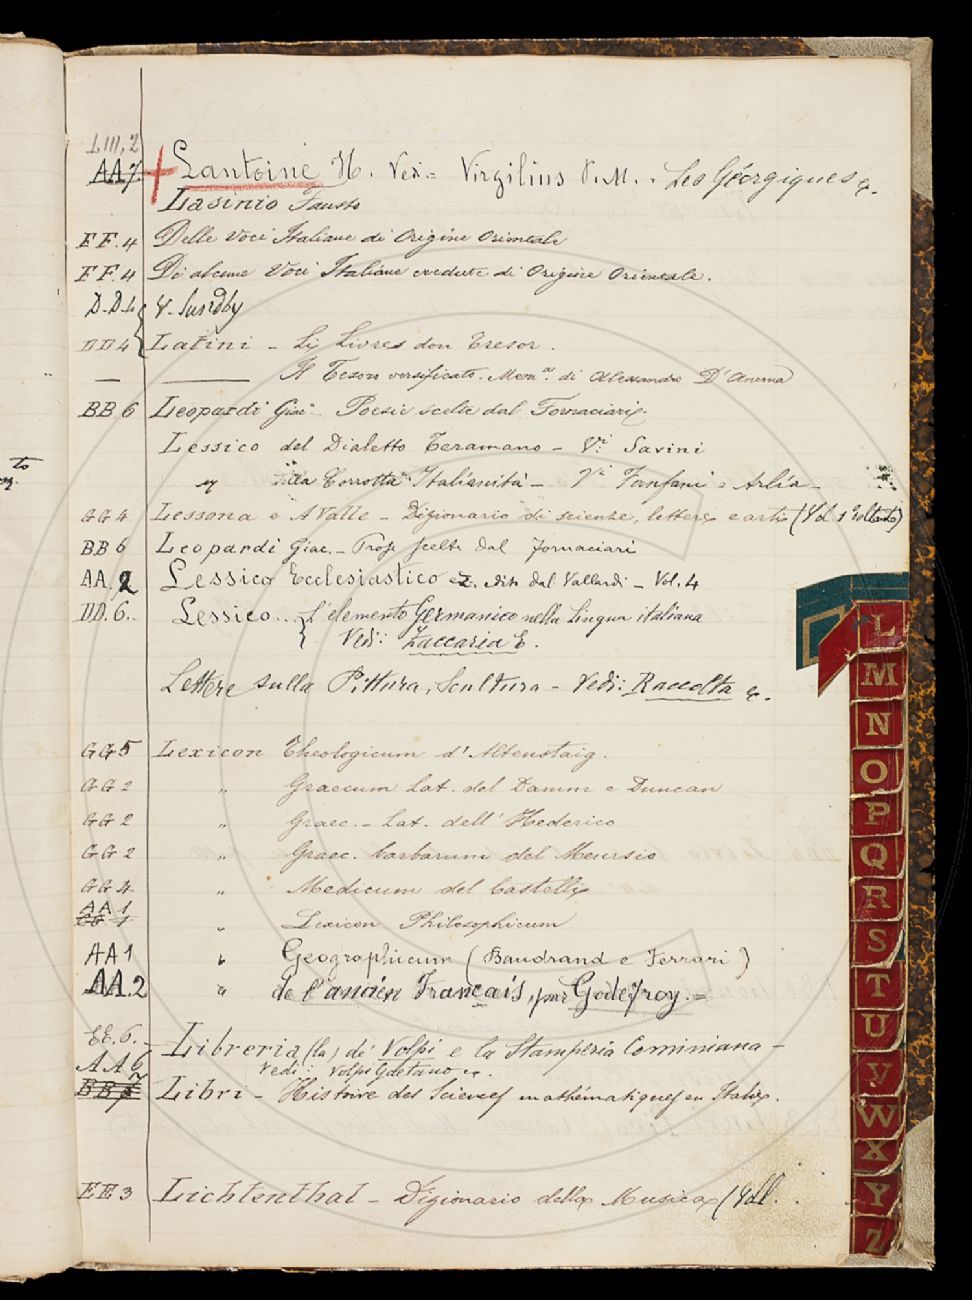 L.III.2
AA7 Lantoine H. Ved. = Virgilius P. M. - Les Géorgiques &.
Lasinio Fausto
FF.4 Delle Voci Italiane di Origine Orientale
FF.4 Di alcune Voci Italiane credute di Origine Orientale.
D.D.4 V. Sundby
DD4 Latini - Li Livres dou Tresor.
— ——— Il Tesoro versificato. Mem.e di Alessandro D'Ancona
BB6 Leopardi Giac. - Poesie scelte dal Fornaciari
Lessico del Dialetto Teramano - V.i Savini
" della Corrotta Italianità - V.i Fanfani e Arlìa -
GG4 Lessona e A Valle - Dizionario di scienze, lettere e arti (Vol. 1 soltanto)
BB6 Leopardi Giac. - Prose scelte dal Fornaciari
AA.2 Lessico Ecclesiastico &. edito dal Vallardi - Vol. 4
DD.6.. Lessico... L'elemento Germanico nella lingua italiana
Vedi: Zaccaria E.
Lettere sulla Pittura, Scultura - Vedi: Raccolta &.
GG5 Lexicon Theologicum d'Altenstaig.
GG2 " Graecum Lat. del Damm e Duncan
GG2 " Graec. - Lat. dell'Hederico
GG2 " Graec. barbarum del Meursio
GG4 " Medicum del Castelli
AA1
GG1 " Lexicon Philosophicum
AA1 " Geographicum (Baudrand e Ferrari)
AA.2 " de l'ancien Français, par Godefroy. =
EE.6. - Libreria (la) de' Volpi e la Stamperia Cominiana -
AA6 Vedi: Volpi Gaetano &.
BB Libri - Histoire des Sciences mathématiques en Italie.
EE3 Lichtenthal - Dizionario della Musica (Vol.
L
M
N
O
P
Q
R
S
T
U
V
W
X
Y
Z